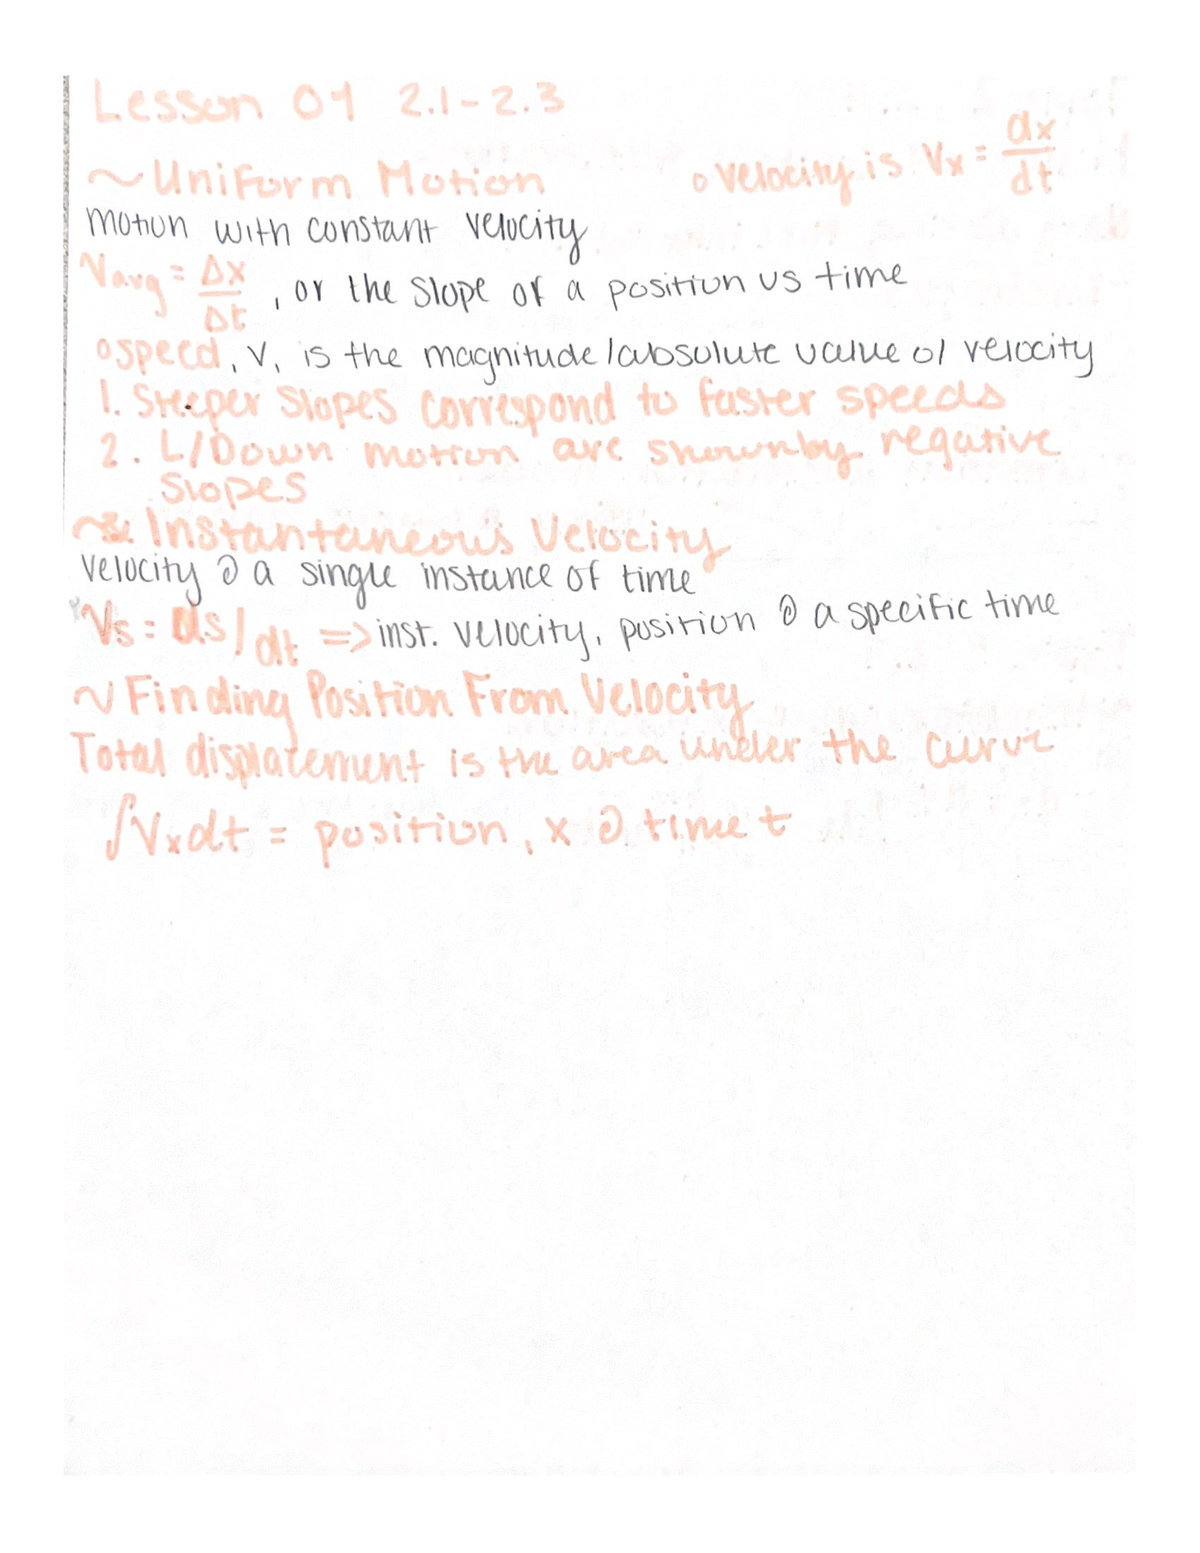 Lesson 04 2.1-2.3
~Uniform Motion
o velocity is Vx = dx/dt
motion with constant velocity
Vavg = Δx/Δt, or the slope of a position vs time
o speed, v, is the magnitude/absolute value of velocity
1. Steeper slopes correspond to faster speeds
2. L/Down motion are shown by negative
slopes
~ Instantaneous Velocity
velocity @ a single instance of time
Vs = ds/dt => inst. velocity, position @ a specific time
~ Finding Position From Velocity
Total displacement is the area under the curve
∫Vxdt = position, x @ time t